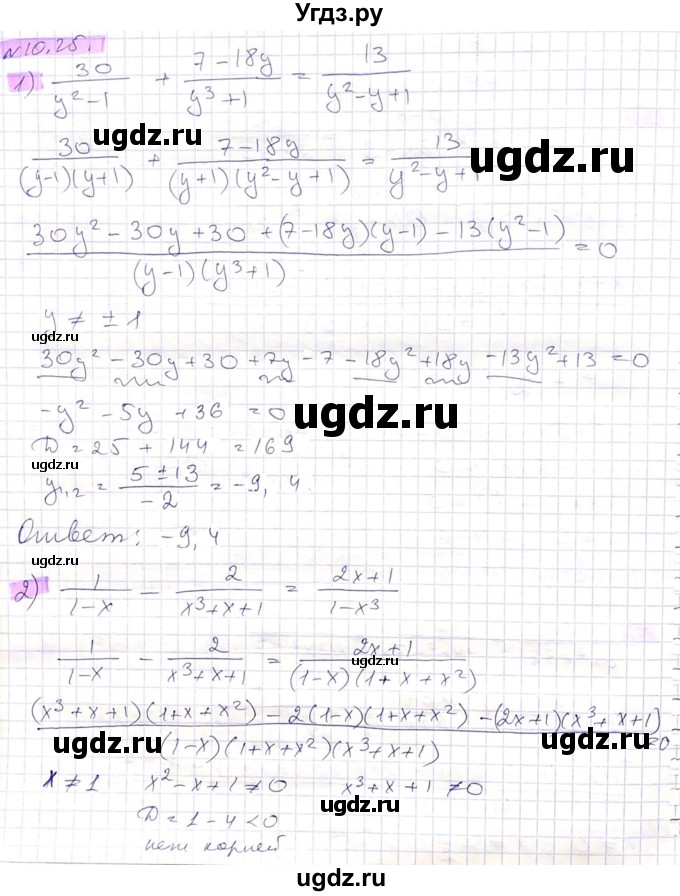 Угдз.ру
№10.25.
1) 30/(y²-1) + (7-18y)/(y³+1) = 13/(y²-y+1)
30/((y-1)(y+1)) + (7-18y)/((y+1)(y²-y+1)) = 13/(y²-y+1)
ugdz.ru
ugdz.ru
ugdz.ru
(30y²-30y+30+(7-18y)(y-1)-13(y²-1))/((y-1)(y³+1)) = 0
y ≠ ±1
ugdz.ru
30y²-30y+30+7y-7-18y²+18y-13y²+13=0
-y²-5y+36=0
ugdz.ru
D=25+144=169
ugdz.ru
y₁,₂ = (5±13)/(-2) = -9, 4.
Ответ: -9, 4
ugdz.ru
ugdz.ru
2) 1/(1-x) - 2/(x³+x+1) = (2x+1)/(1-x³)
1/(1-x) - 2/(x³+x+1) = (2x+1)/((1-x)(1+x+x²))
ugdz.ru
((x³+x+1)(1+x+x²)-2(1-x)(1+x+x²)-(2x+1)(x³+x+1))/((1-x)(1+x+x²)(x³+x+1)) = 0
ugdz.ru
ugdz.ru
x≠1 x²-x+1≠0 x³+x+1≠0
ugdz.ru
D=1-4<0
нет корней
ugdz.ru
ugdz.ru